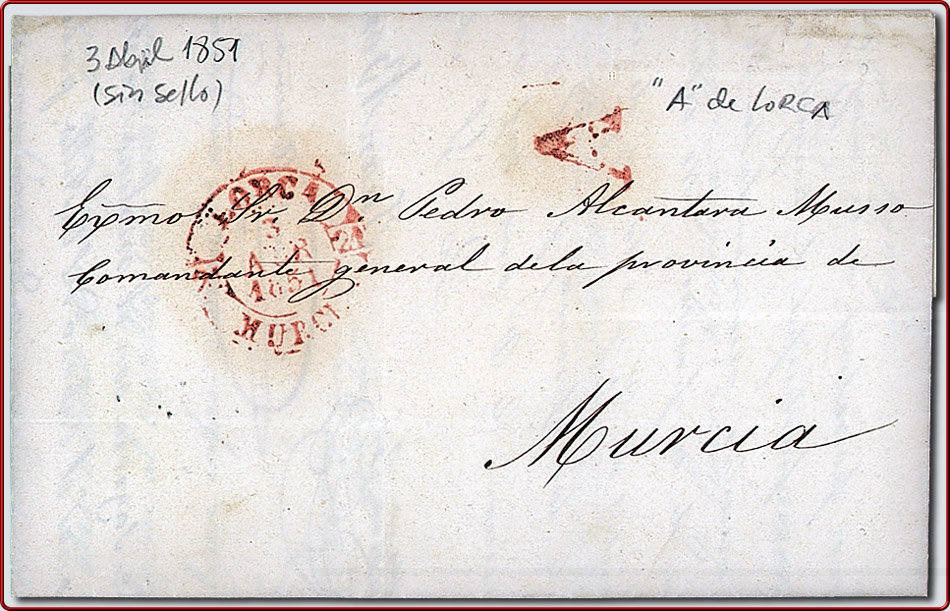 3 Abril 1851
(sin sello)
"A" de LORCA
A
LORCA
3
ABR
1851
21
MURCI
Exmo Sr Dn Pedro Alcantara Musso
Comandante general dela provincia de
Murcia